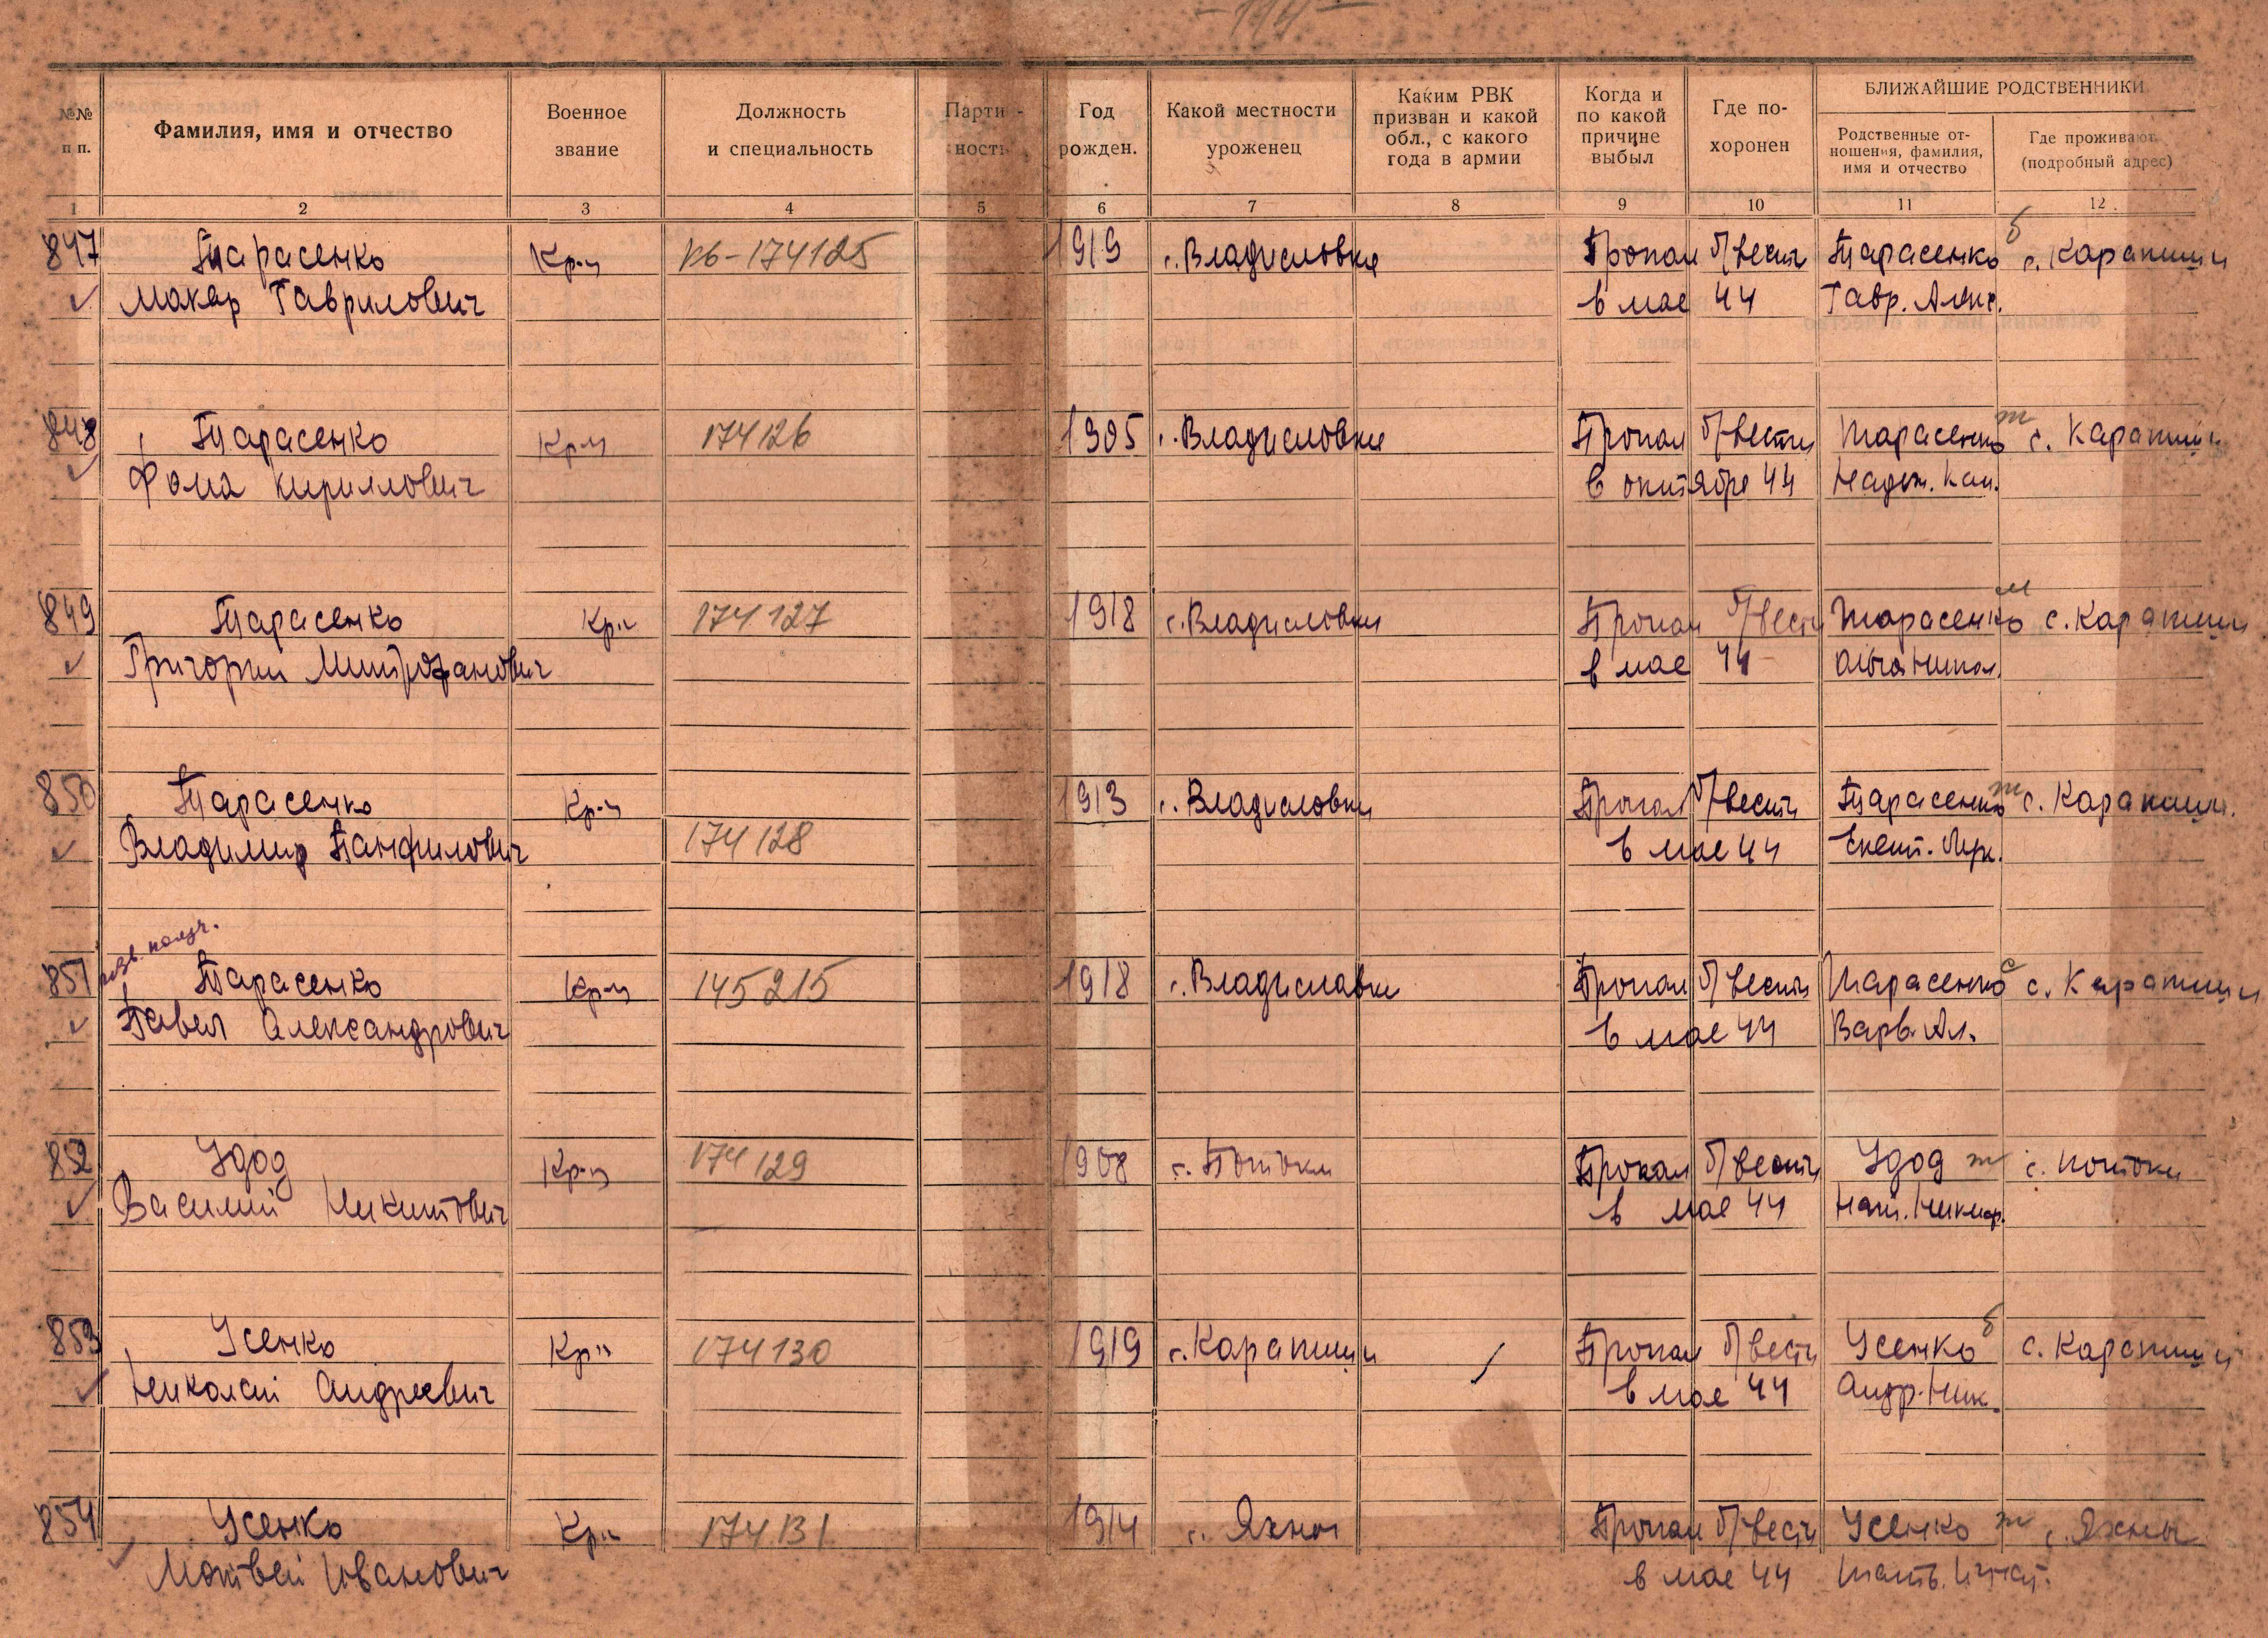 №№ п п.
Фамилия, имя и отчество
Военное звание
Должность и специальность
Парти- ность
Год рожден.
Какой местности уроженец
Каким РВК призван и какой обл., с какого года в армии
Когда и по какой причине выбыл
Где по- хоронен
БЛИЖАЙШИЕ РОДСТВЕННИКИ
Родственные от- ношения, фамилия, имя и отчество
Где проживают (подробный адрес)
1 2 3 4 5 6 7 8 9 10 11 12
847 Тарасенко Кр-ц Кв-174125 1919 с. Владисловка Пропал б/вести Тарасенко б с. Карапиши
Макар Гаврилович в мае 44 Гавр. Алекс.
848 Тарасенко Кр-ц 174126 1905 с. Владисловка Пропал б/вести Тарасенко ж с. Карапиши
Фома Кириллович в октябре 44 Надеж.
849 Тарасенко Кр-ц 174127 1918 с. Владисловка Пропал б/вести Тарасенко м с. Карапиши
Григорий Митрофанович в мае 44
850 Тарасенко Кр-ц 1913 с. Владисловка Пропал б/вести Тарасенко ж с. Карапиши.
Владимир Панфилович 174128 в мае 44 Екат.
851 Тарасенко Кр-ц 145215 1918 с. Владиславка Пропал б/вести Тарасенко с с. Карапиши
Павел Александрович в мае 44 Варв. Ал.
852 Удод Кр-ц 174129 1908 с. Потоки Пропал б/вести Удод ж с. Потоки
Василий Никитович в мае 44 Нат.
853 Усенко Кр-ц 174130 1919 с. Карапиши Пропал б/вести Усенко б с. Карапиши
Николай Андреевич в мае 44 Андр. Ник.
854 Усенко Кр-ц 174131 1914 с. Яхны Пропал б/вести Усенко ж с. Яхны
Матвей Иванович в мае 44